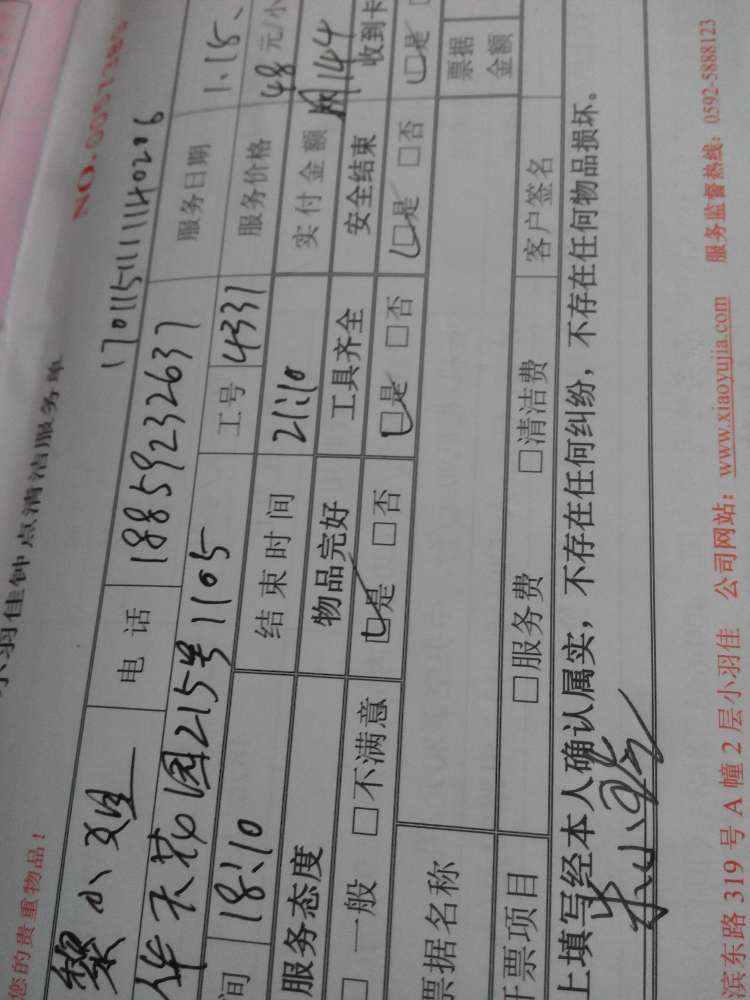 您的贵重物品！
小羽佳钟点清洁服务单
NO.0057389
170115111114 0206
黎小姐 电话 18859232637 服务日期 1.15、
华天花园215号1105 工号 4331 服务价格 48元/小
间 18:10 结束时间 21:10 实付金额 144
服务态度 物品完好 工具齐全 安全结束 收到卡
□一般 □不满意 □是 □否 □是 □否 □是 □否 □是
票据名称 票据金额
开票项目 □服务费 □清洁费 客户签名
上填写经本人确认属实，不存在任何纠纷，不存在任何物品损坏。
滨东路 319 号 A 幢 2 层小羽佳 公司网站：www.xiaoyujia.com 服务监督热线：0592-5888123